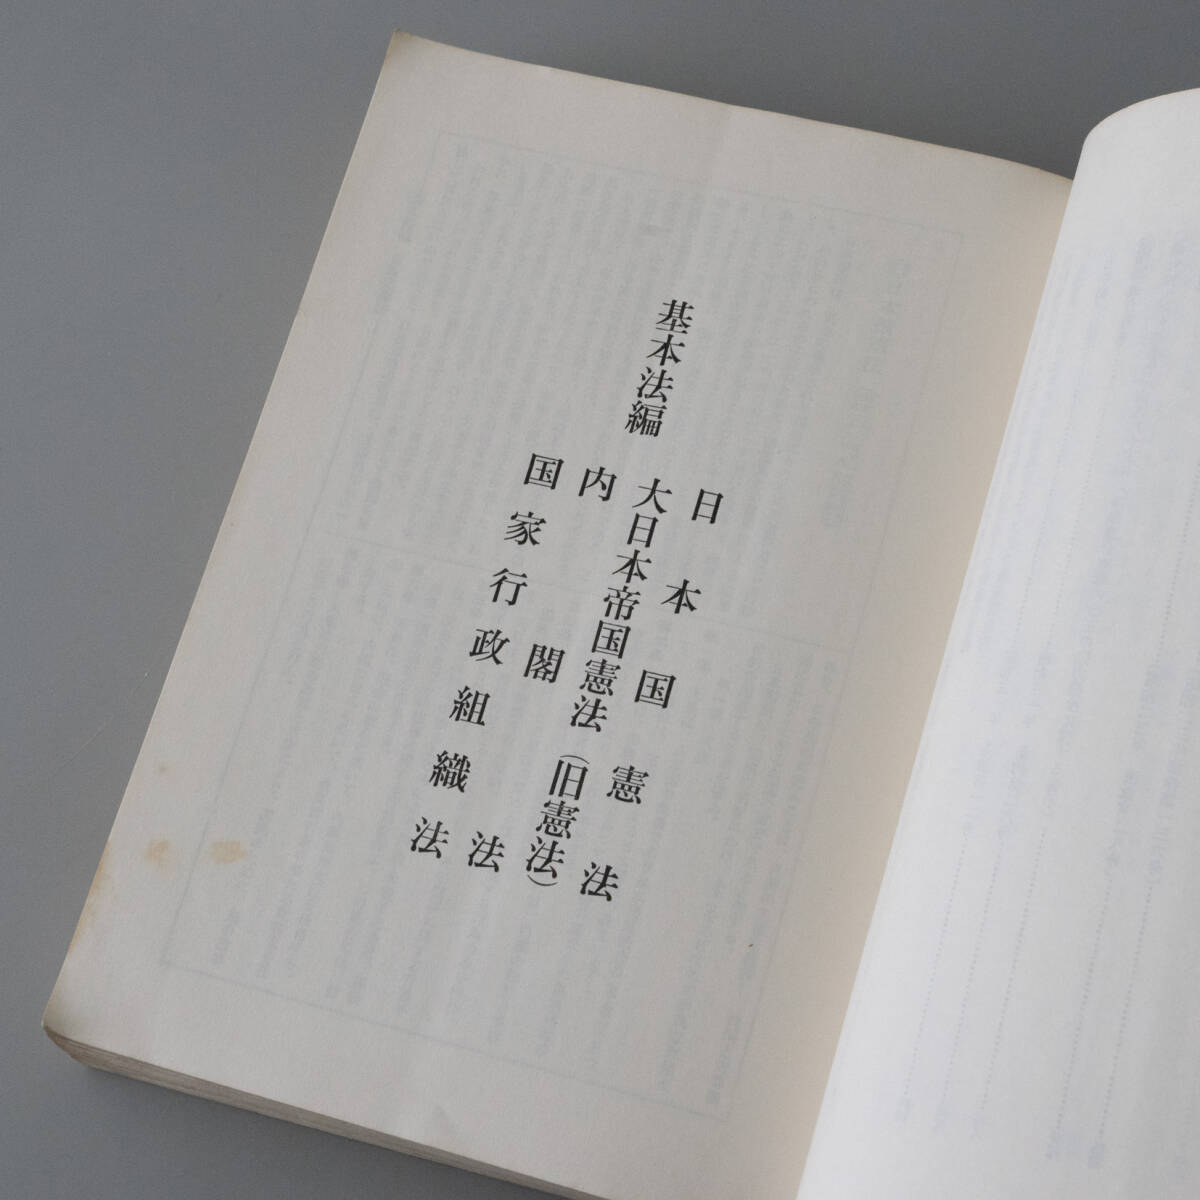 基本法編
日本国憲法
大日本帝国憲法（旧憲法）
内閣法
国家行政組織法